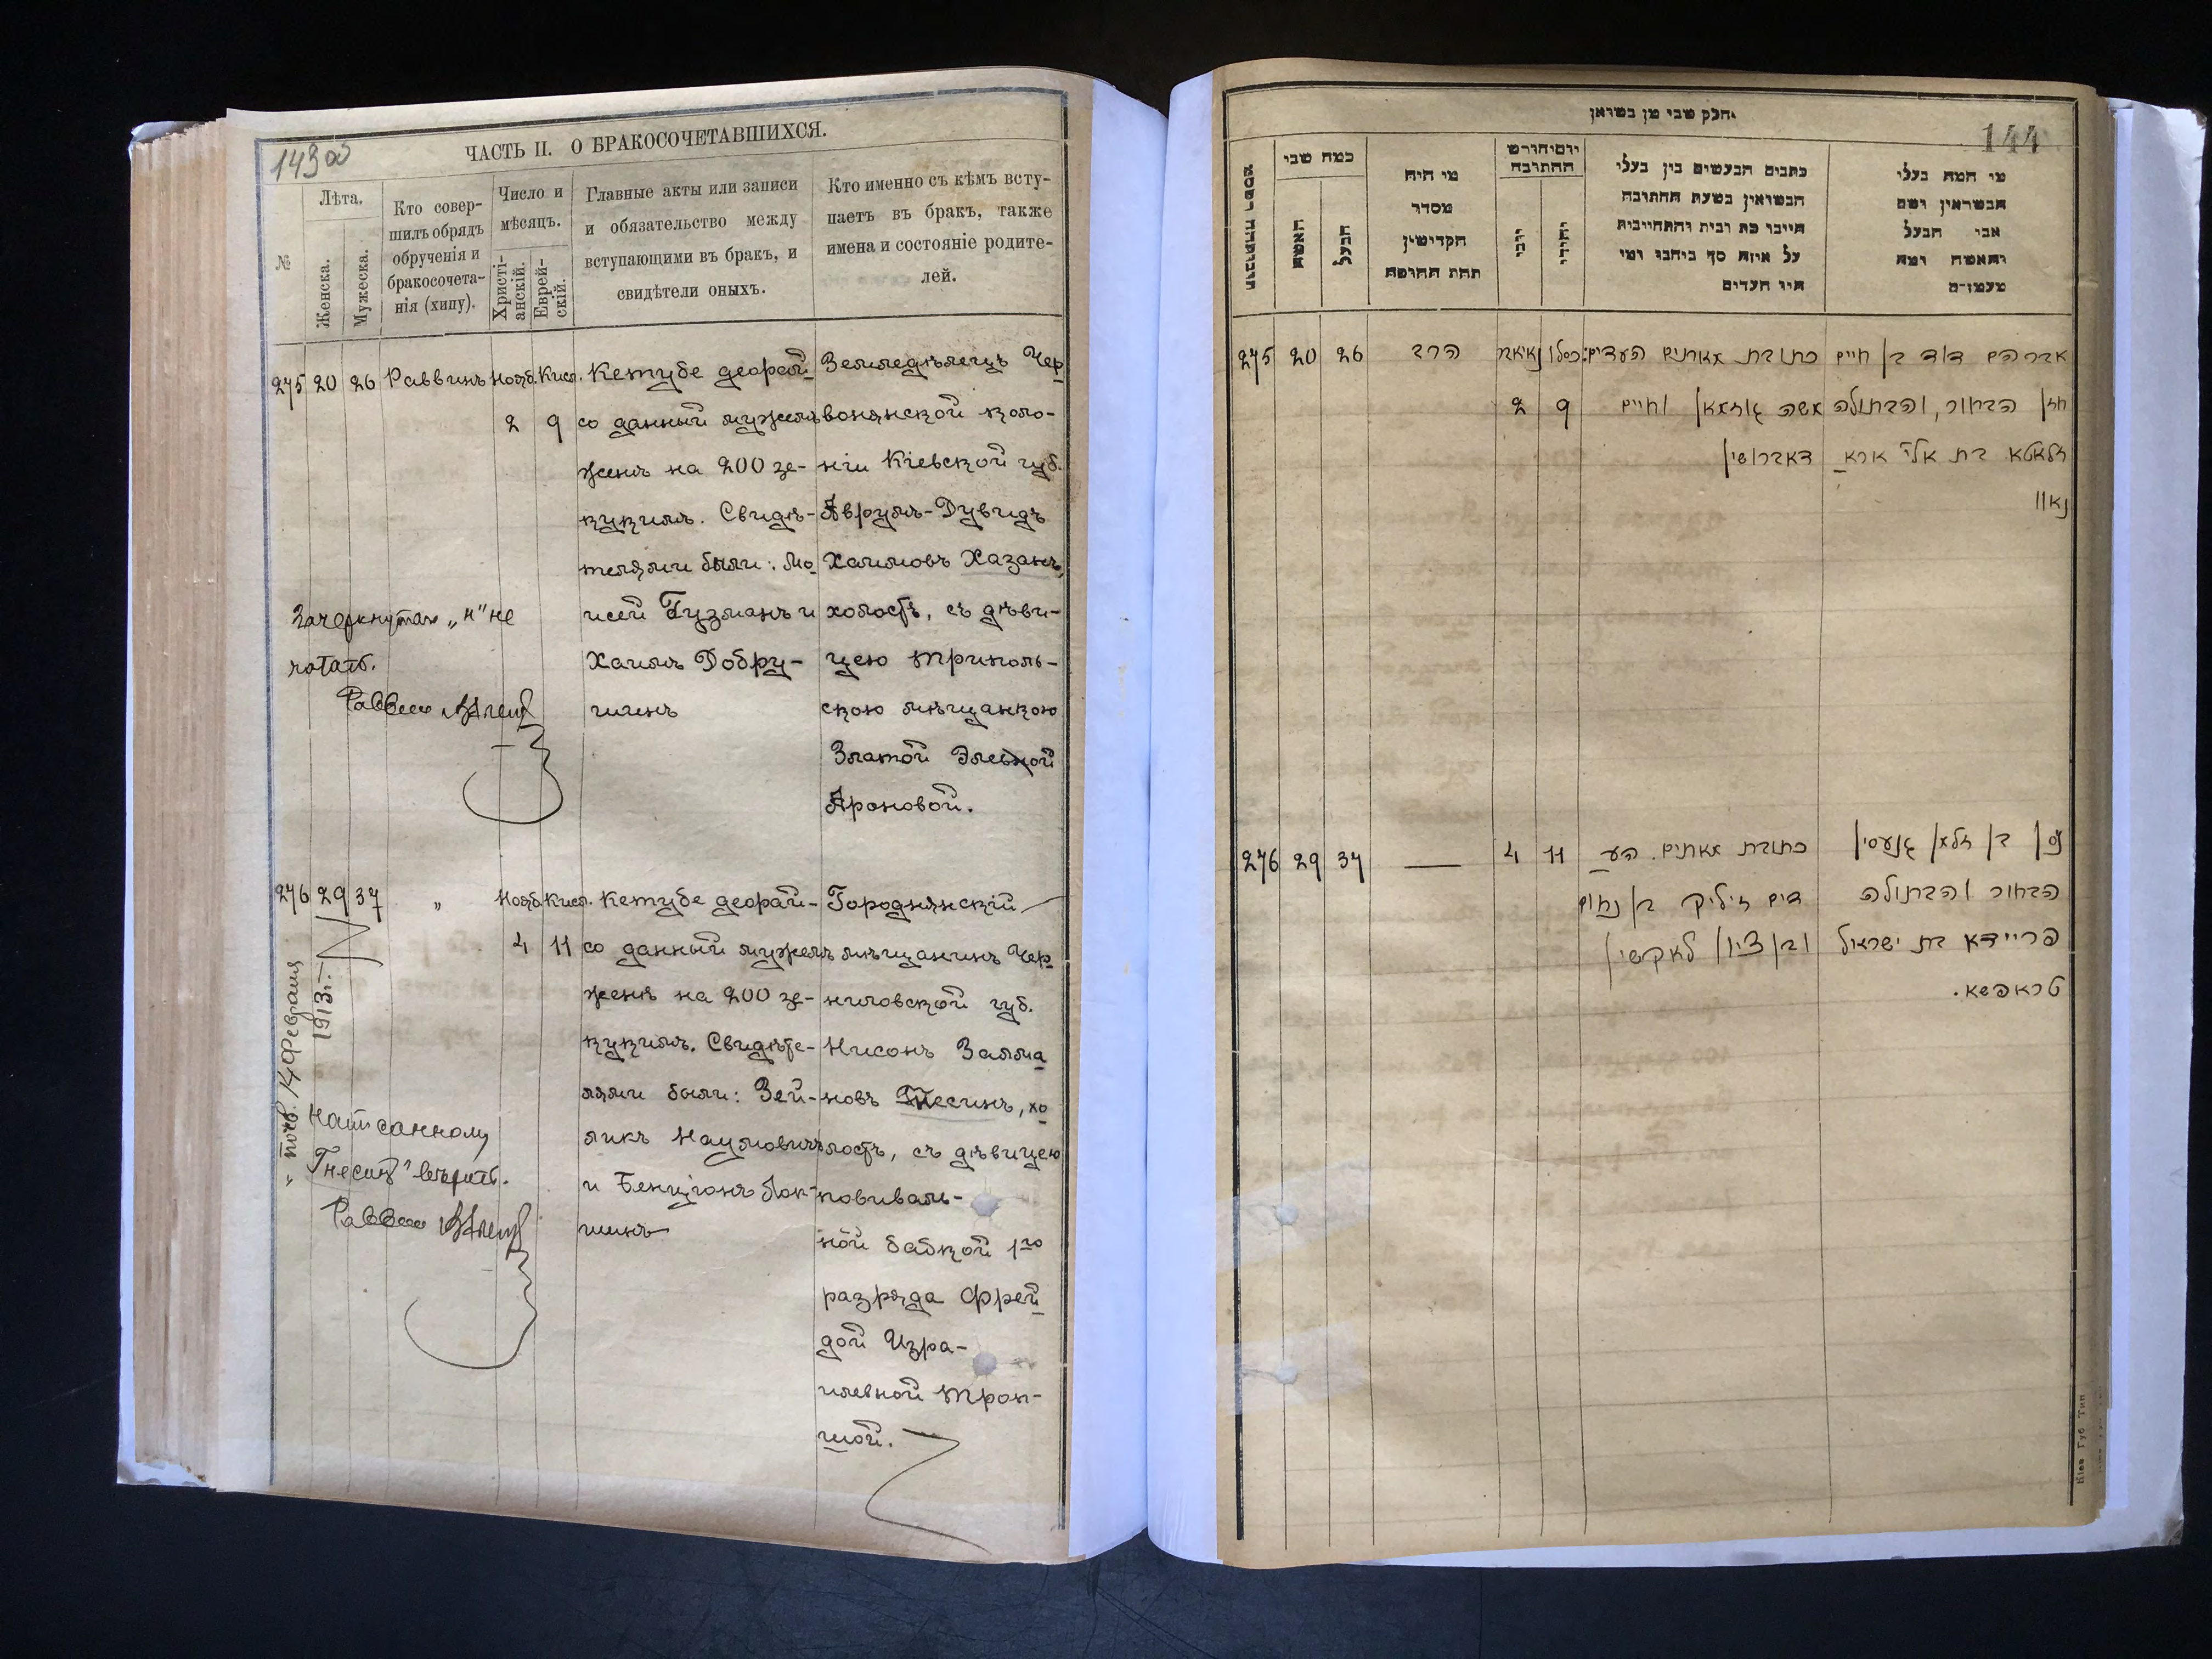 143об
ЧАСТЬ II. О БРАКОСОЧЕТАВШИХСЯ.
№
Лѣта.
Женска.
Мужеска.
Кто совер-
шилъ обрядъ
обрученія и
бракосочета-
нія (хипу).
Число и
мѣсяцъ.
Христі-
анскій.
Еврей-
скій.
Главные акты или записи
и обязательство между
вступающими въ бракъ, и
свидѣтели оныхъ.
Кто именно съ кѣмъ всту-
паетъ въ бракъ, также
имена и состояніе родите-
лей.
275 20 26 Раввинъ Нояб. Кисл.
2 9
Кетубе деорай-
со данный мужемъ
женѣ на 200 зе-
кукимъ. Свидѣ-
телями были: Мо
исей Гузманъ и
Хаимъ Добру-
шинъ
Земледѣлецъ Чер
вонянской коло-
ніи Кіевской губ.
Аврумъ-Дувидъ
Хаимовъ Хазанъ,
холостъ, съ дѣви-
цею Триполь-
скою мѣщанкою
Златой Элевной
Ароновой.
Зачеркнутая „н" не
читать.
Раввинъ
276 29 37 „ Нояб. Кисл.
4 11
Кетубе деорай-
со данный мужемъ
женѣ на 200 зе-
кукимъ. Свидѣте-
лями были: Зей-
ликъ Наумовичъ
и Бенціонъ Лок-
шинъ
Городнянскій
мѣщанинъ Чер
ниговской губ.
Нисонъ Залма
новъ Гнесинъ, хо
лостъ, съ дѣвицею
повиваль-
ной бабкой 1го
разряда Фрей
дой Изра-
илевной Троп-
шой.
14 Февраля
1913 г.
Написанному
„Гнесинъ" вѣрить.
Раввинъ
144
כמה שני
האשה
הבעל
מי היה
מסדר
הקדישין
תחת החופה
כתבים הנעשים בין בעלי
הנשואין בשעת החתונה
על איזה סך כיתבו ומי
היו העדים
מי המה בעלי
הנשואין ושם
אבי הבעל
והאשה ומה
275 20 26 הרב
2 9
כתובת מאתים העדים:
משה גוזמאן וחיים
דאברושין
אברהם דוד בן חיים
חזן הבחור, והבתולה
זלאטא בת אלי' ארא
נאוו
276 29 37 — 4 11
כתובת מאתים. הע
דים זיליק בן נחום
ובן ציון לאקשין
נסן בן זלמן גנעסין
הבחור והבתולה
פריידא בת ישראל
טראפשא.
Кіев Губ Тип